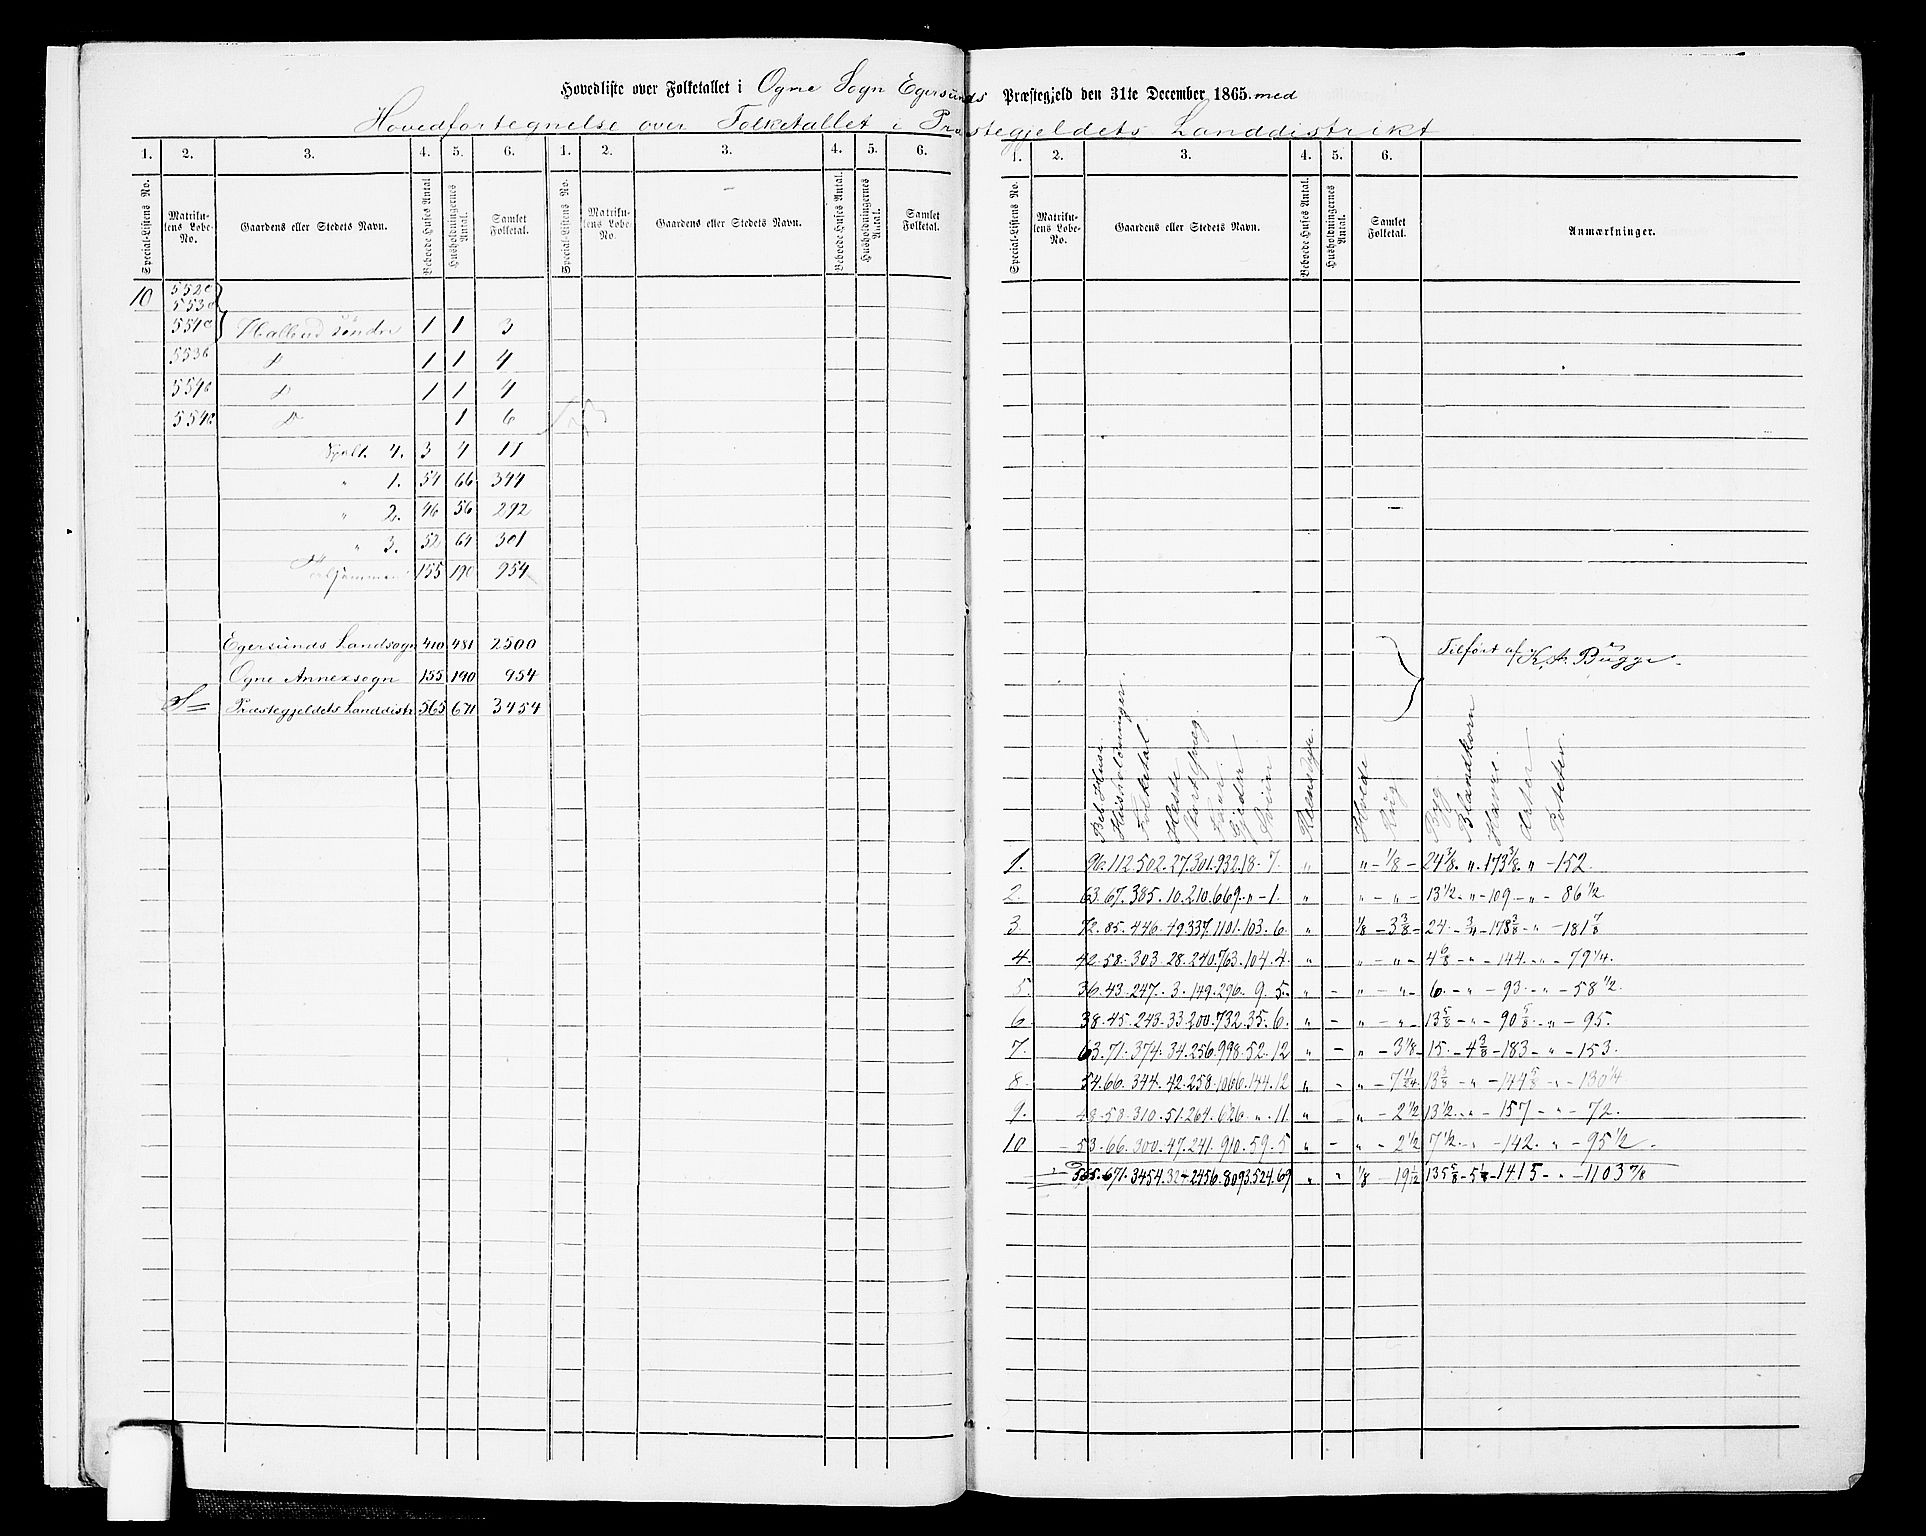 Hovedliste over Folketallet i Ogne Sogn Egersunds Præstegjeld den 31te December 1865. med
Hovedfortegnelse over Folketallet i Præstegjeldets Landdistrikt
1. 2. 3. 4. 5. 6. 1. 2. 3. 4. 5. 6.
Special-Listens No. Matrikulens Løbe-No. Gaardens eller Stedets Navn. Beboede Huses Antal Husholdningernes Antal. Samlet Folketal. Special-Listens No. Matrikulens Løbe-No. Gaardens eller Stedets Navn. Beboede Huses Antal. Husholdningernes Antal. Samlet Folketal.
10 552c
553c
554c Halland søndre 1 1 3
553b D 1 1 4
554b D 1 1 4
554c D 1 6
Spalt. 4. 3 4 11
" 1. 54 66 344
" 2. 46 56 292
" 3. 52 64 301
Tilsammen 155 190 954
Egersunds Landsogn 410 481 2500
Ogne Annexsogn 155 190 954
S= Præstegjeldets Landdistr 565 671 3454
1. 2. 3. 4. 5. 6.
Special-Listens No. Matrikulens Løbe-No. Gaardens eller Stedets Navn. Beboede Huses Antal. Husholdningernes Antal. Samlet Folketal. Anmærkninger.
Tilført af K. A. Bugge.
Beb. Huse. Husholdninger. Folketal Heste Stort Qvæg. Faar. Gjeder Sviin Rensdyr. Hvede Rug Byg Blandkorn Havre Erter Poteter.
1. 96. 112. 502. 27. 301. 932. 18. 7. " " - 1/8 - 24 3/8. ". 173 3/8. " - 152.
2. 63. 67. 385. 10. 210. 669. " - 1. " " - " - 13 1/2 - " - 109 - " - 86 1/2
3. 72. 85. 446. 49 337. 1101. 103. 6. " 1/8 - 3 3/8 - 24. - 3/4 - 178 3/8 - " - 181 7/8
4. 42. 58. 303. 28. 240. 763. 104. 4. " " - " - 4 6/8 - " - 144. - " - 79 1/4.
5. 36. 43. 247. 3. 149. 290. 9 5. " - " - " - 6. - " - 93. - " - 58 1/2.
6. 38. 45. 243. 33 200. 732. 35. 6. " - " - " - 13 5/8 - " - 90 5/8. - " - 95.
7. 63. 71. 374. 34. 256. 998. 52. 12 " - " - 3 1/8 - 15. - 4 3/8 - 183 - " - 153.
8. 54. 66. 344. 42. 258. 1066. 144. 12 " - " - 7 11/24. 13 3/8 - " - 144 5/8 - " - 130 1/4
9. 48. 58. 310. 51. 264. 626. ". 11 " - " - 2 1/2 13 1/2. " - 157 - " - 72.
10 53. 66. 300. 47. 241. 910. 59. 5 " - " - 2 1/2 7 1/2. " - 142. " - 95 1/2.
565. 671. 3454. 324 2456. 8093. 524. 69 " " 1/8 - 19 1/12 135 5/8 - 5 1/8 - 1415 - " - 1103 7/8